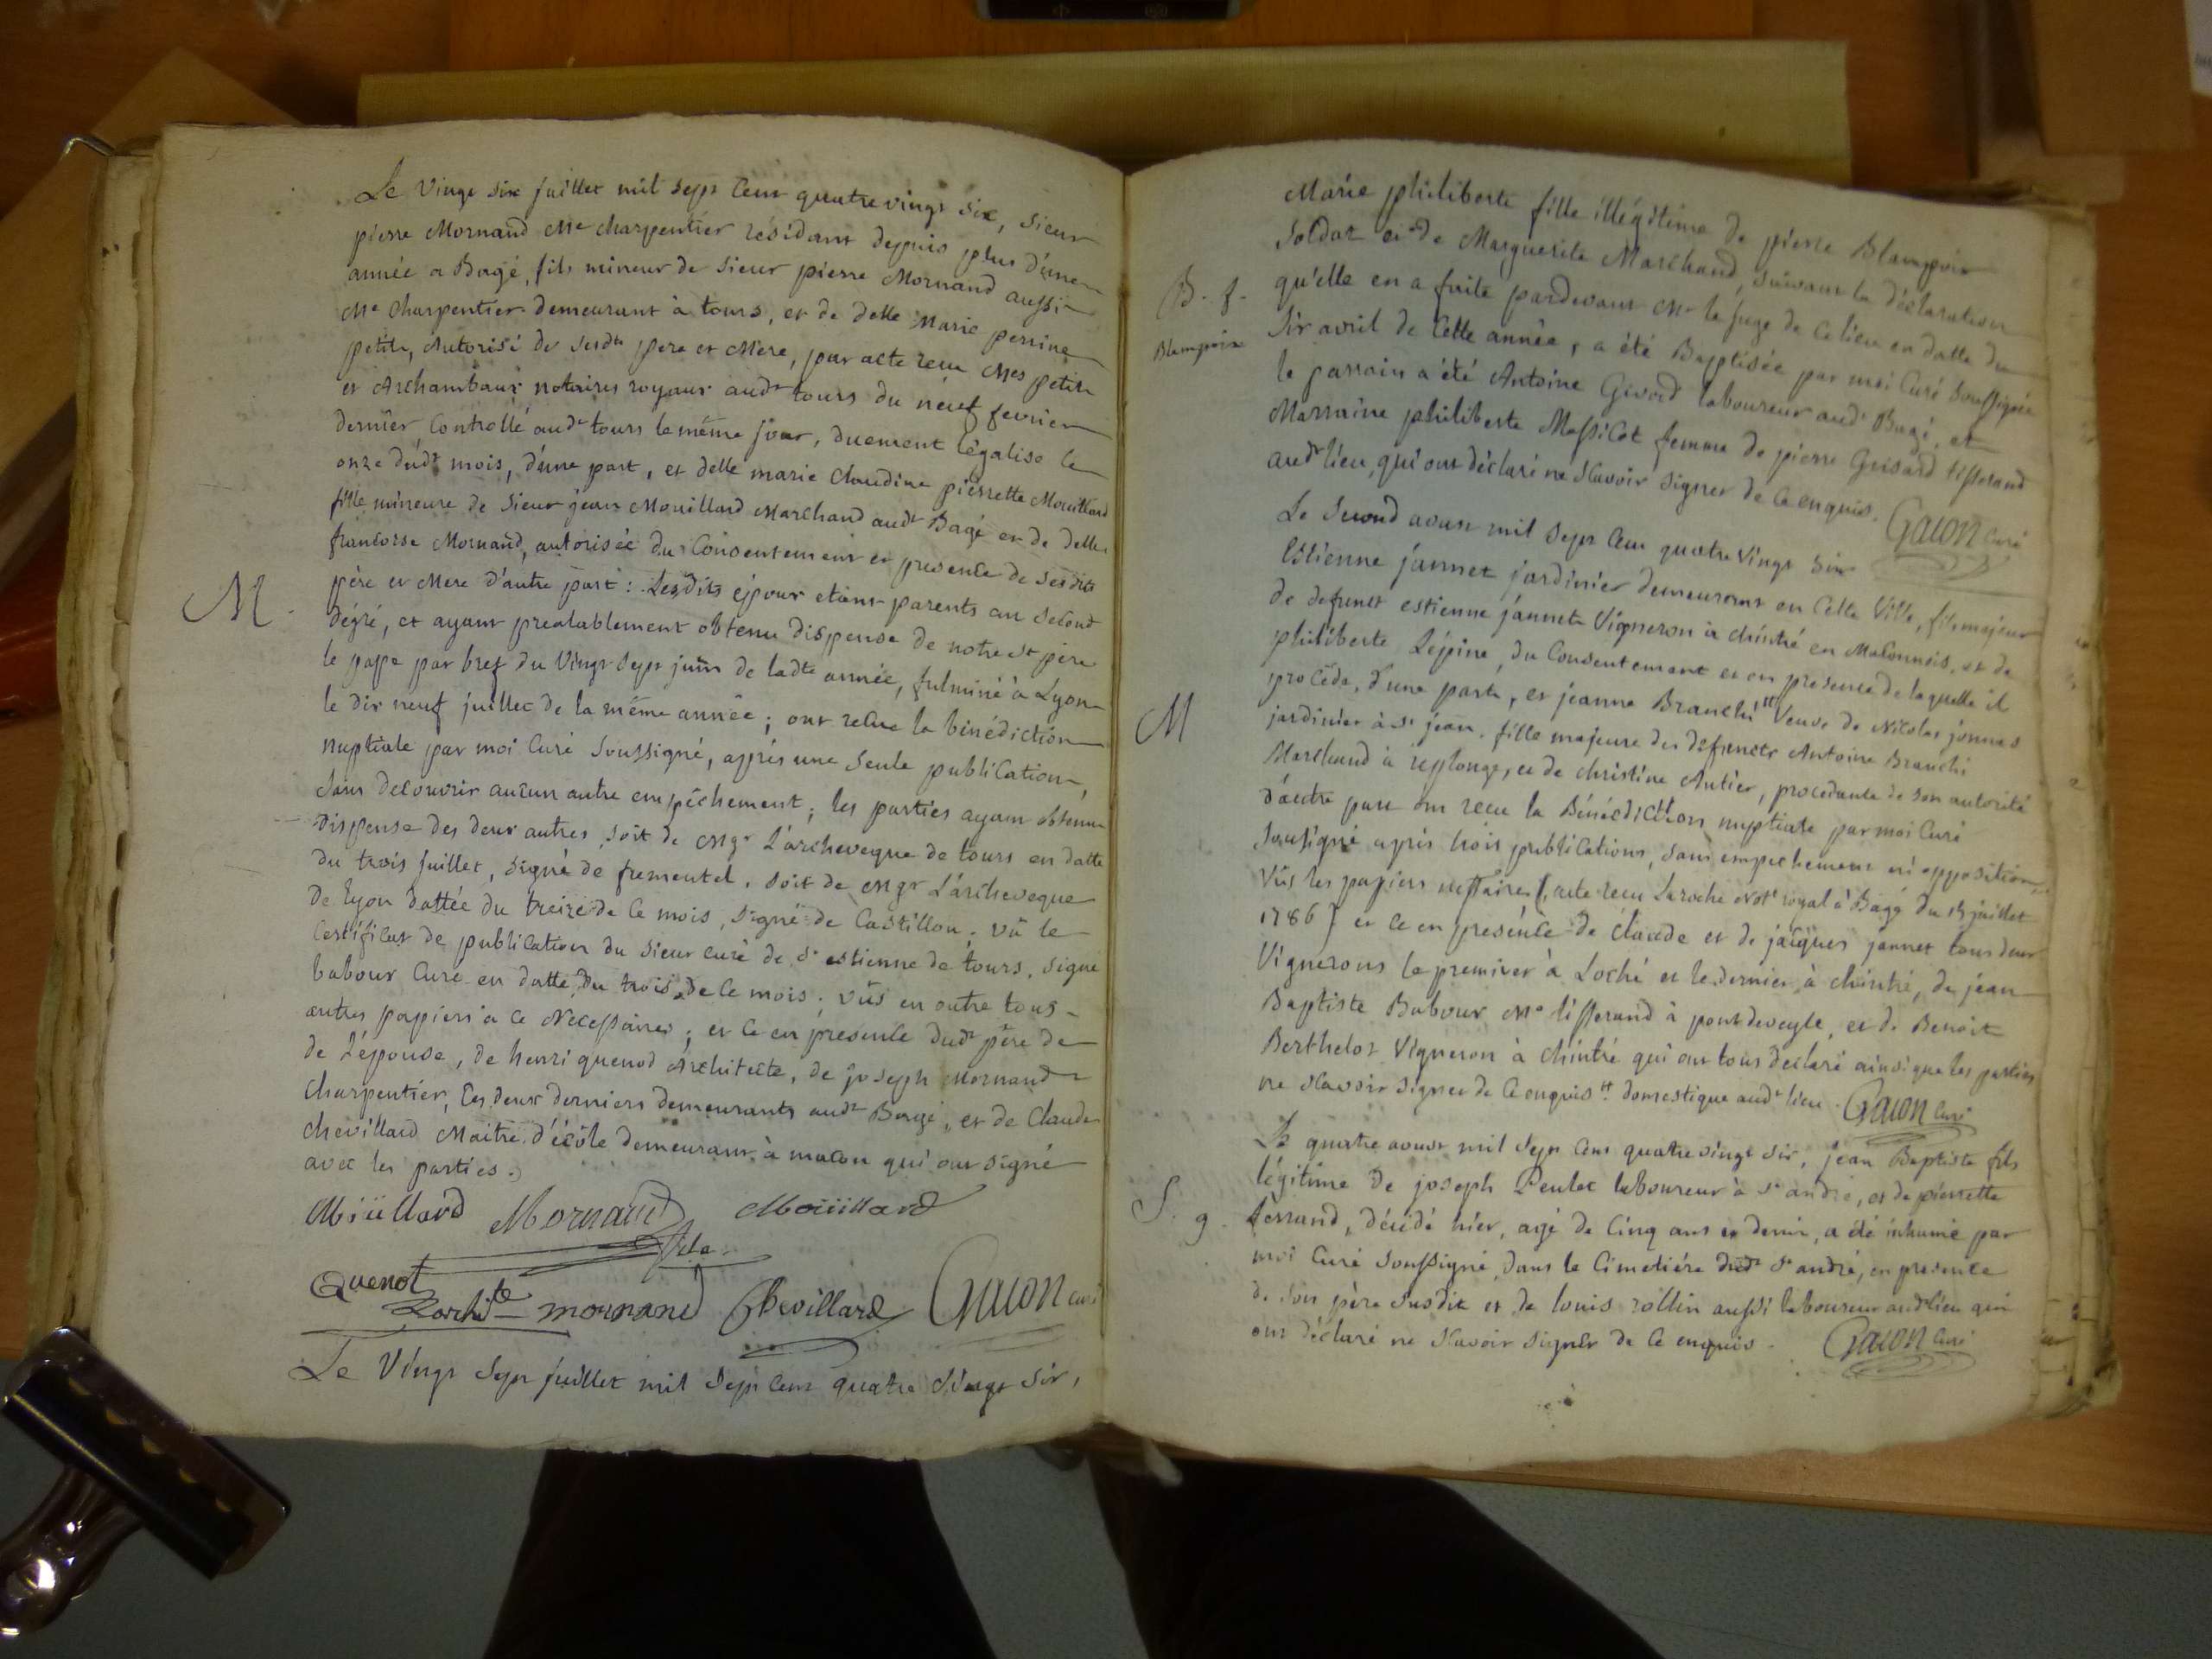 Le vingt six juillet mil sept cent quatre vingt six, sieur
pierre Mornand Me charpentier résidant depuis plus d'une
année a Bagé, fils mineur de sieur pierre Mornand aussi
Me charpentier demeurant à tours, et de delle Marie perrine
petit, autorisé de sesdts pere et Mere, par acte recu Mes petit
et Archambaux notaires royaux audt tours du neuf fevrier
dernier, Controllé audt tours le même jour, duement légalisé le
onze dudt mois, d'une part, et delle marie Claudine pierrette Mouillard
fille mineure de sieur jean Mouillard Marchand audt Bagé et de delle
francoise Mornand, autorisée du Consentement et presence de sesdits
M.
père et Mere d'autre part : Lesdits époux etant parents au second
dégré, et ayant prealablement obtenu dispense de notre st père
le pape par bref du vingt sept juin de ladte année, fulminé à Lyon
le dix neuf juillet de la même année ; ont recue la bénédiction
nuptiale par moi Curé soussigné, après une seule publication,
sans decouvrir aucun autre empêchement ; les parties ayant obtenu
dispense des deux autres, soit de Mgr L'archeveque de tours en datte
du trois juillet, signé de frementel, soit de Mgr L'archeveque
de Lyon dattée du treize de ce mois, signé de Castillon ; vû le
Certificat de publication du sieur curé de st estienne de tours, signé
babour Curé en datte du trois de ce mois ; vûs en outre tous
autres papiers a ce Necessaires ; et ce en presence dudt père de
de L'épouse, de henri quenod Architecte, de joseph Mornand
charpentier, Ces deux derniers demeurants audt Bagé, et de Claude
chevillard Maitre d'école demeurant à macon qui ont signé
avec les parties.
Mouillard Mornand fils Moüillard
Quenot
Larchite mornand Chevillard Gacon Curé
Le vingt sept juillet mil sept cent quatre vingt six,
Marie philiberte fille illégitime de pierre Blampoix
soldat et de Marguerite Marchand, suivant la déclaration
B. f.
qu'elle en a faite pardevant Mr le juge de ce lieu en datte du
Blampoix
six avril de Cette année, a été Baptisée par moi Curé soussigné
le parrain a été Antoine Givord laboureur audt Bagé, et
Marraine philiberte Massicot femme de pierre Guisard tisserand
audt lieu, qui ont déclaré ne scavoir signer de ce enquis. Gacon Curé
Le second aoust mil sept cent quatre vingt six
Estienne jannet jardinier demeurant en Cette ville, fils majeur
de defunct estienne jannet vigneron à chintré en Maconnois, et de
philiberte Lépine, du Consentement et en presence de laquelle il
procéde, d'une part, et jeanne Branchi tt veuve de Nicolas jonnas
M
jardinier à st jean, fille majeure des defuncts Antoine Branchi
Marchand à replonge, et de christine Antier, procedante de son autorité
d'autre part ont recu la Bénédiction nuptiale par moi Curé
sousigné après trois publications, sans empechement ni opposition,
vûs les papiers necessaires (acte recu Laroche Not. royal à Bagé du 15 juillet
1786) et ce en presénce de claude et de jacques jannet tous deux
vignerons le premier à Loché et le dernier à chintré, de jean
Baptiste Babour Me tisserand à pont deveyle, et de Benoit
Berthelot vigneron à chintré qui ont tous declaré ainsi que les parties
ne scavoir signer de ce enquis tt domestique audt lieu. Gacon Curé
Le quatre aoust mil sept cent quatre vingt six, jean Baptiste fils
légitime de joseph Peulet laboureur à st andré, et de pierrette
S. g.
ferrand, décédé hier, agé de Cinq ans et demi, a été inhumé par
moi Curé soussigné, dans le Cimetiére dudt st andré, en presence
de son père susdit et de louis rollin aussi laboureur audt lieu qui
ont déclaré ne scavoir signer de ce enquis. Gacon Curé